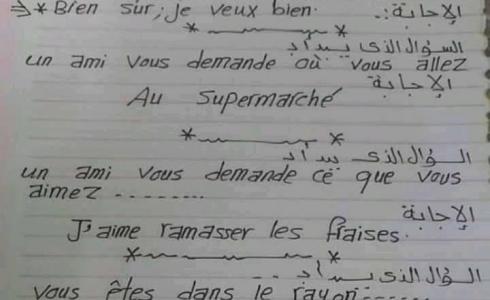 الإجابة:
⇒ * Bien sûr, je veux bien.
السؤال الذى يبدأ بـ
un ami vous demande où vous allez
الإجابة
Au supermarché
السؤال الذى يبدأ بـ
un ami vous demande ce que vous
aimez ........
الإجابة
J'aime ramasser les fraises.
السؤال الذى يبدأ بـ
vous êtes dans le rayon